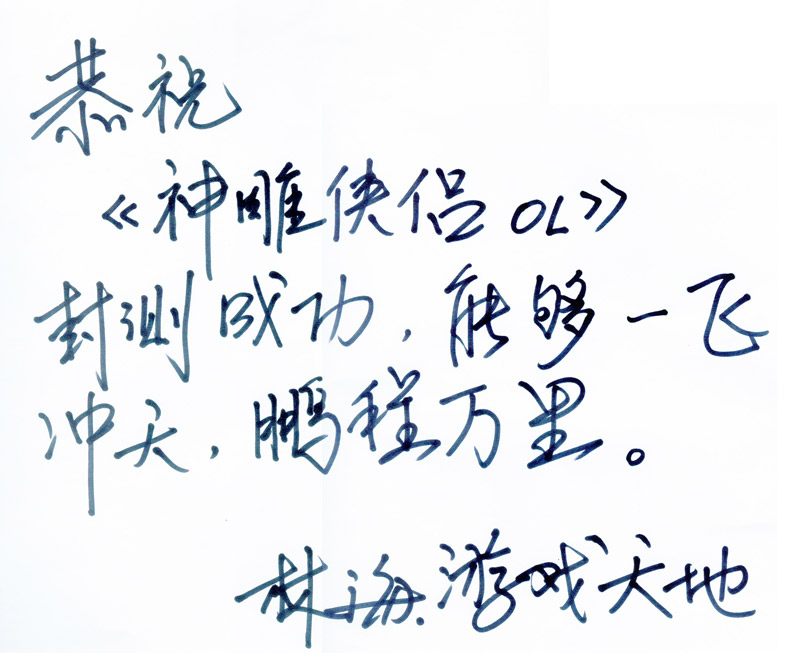 恭祝
《神雕侠侣OL》
封测成功，能够一飞
冲天，鹏程万里。
林海 游戏天地